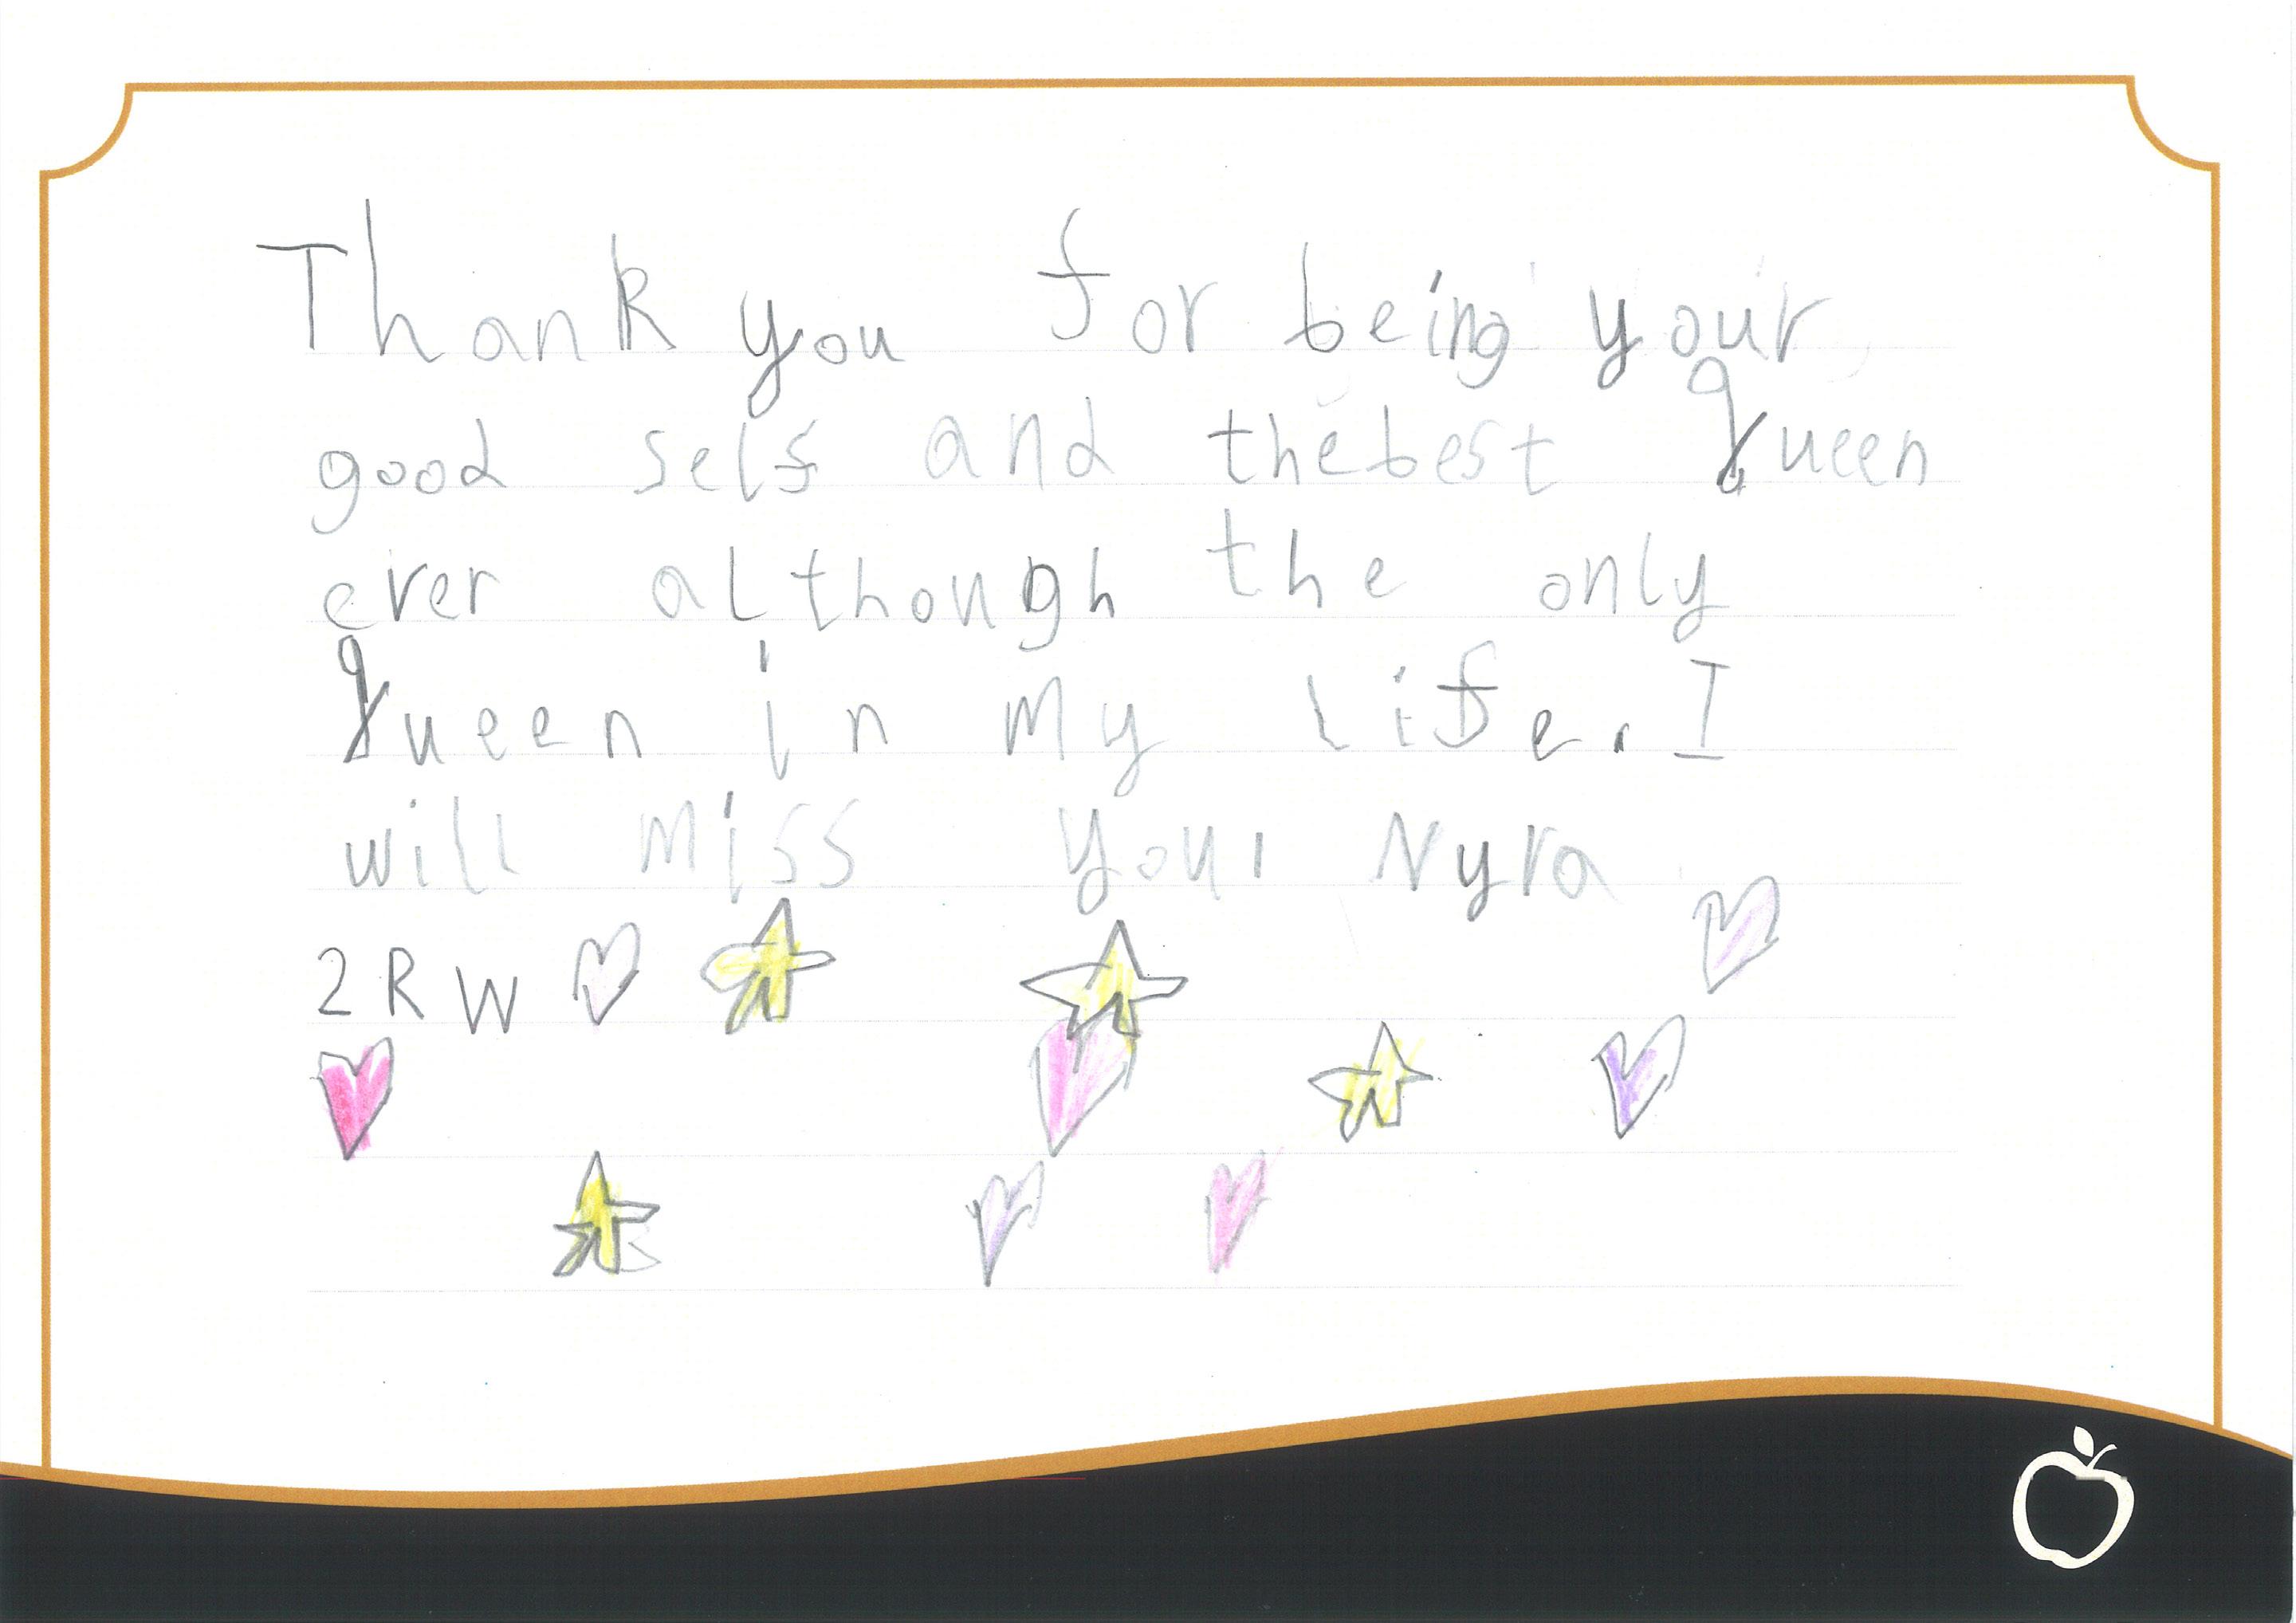 Thank you for being your
good self and the best queen
ever although the only
queen in my life. I
will miss you, Nyra
2RW